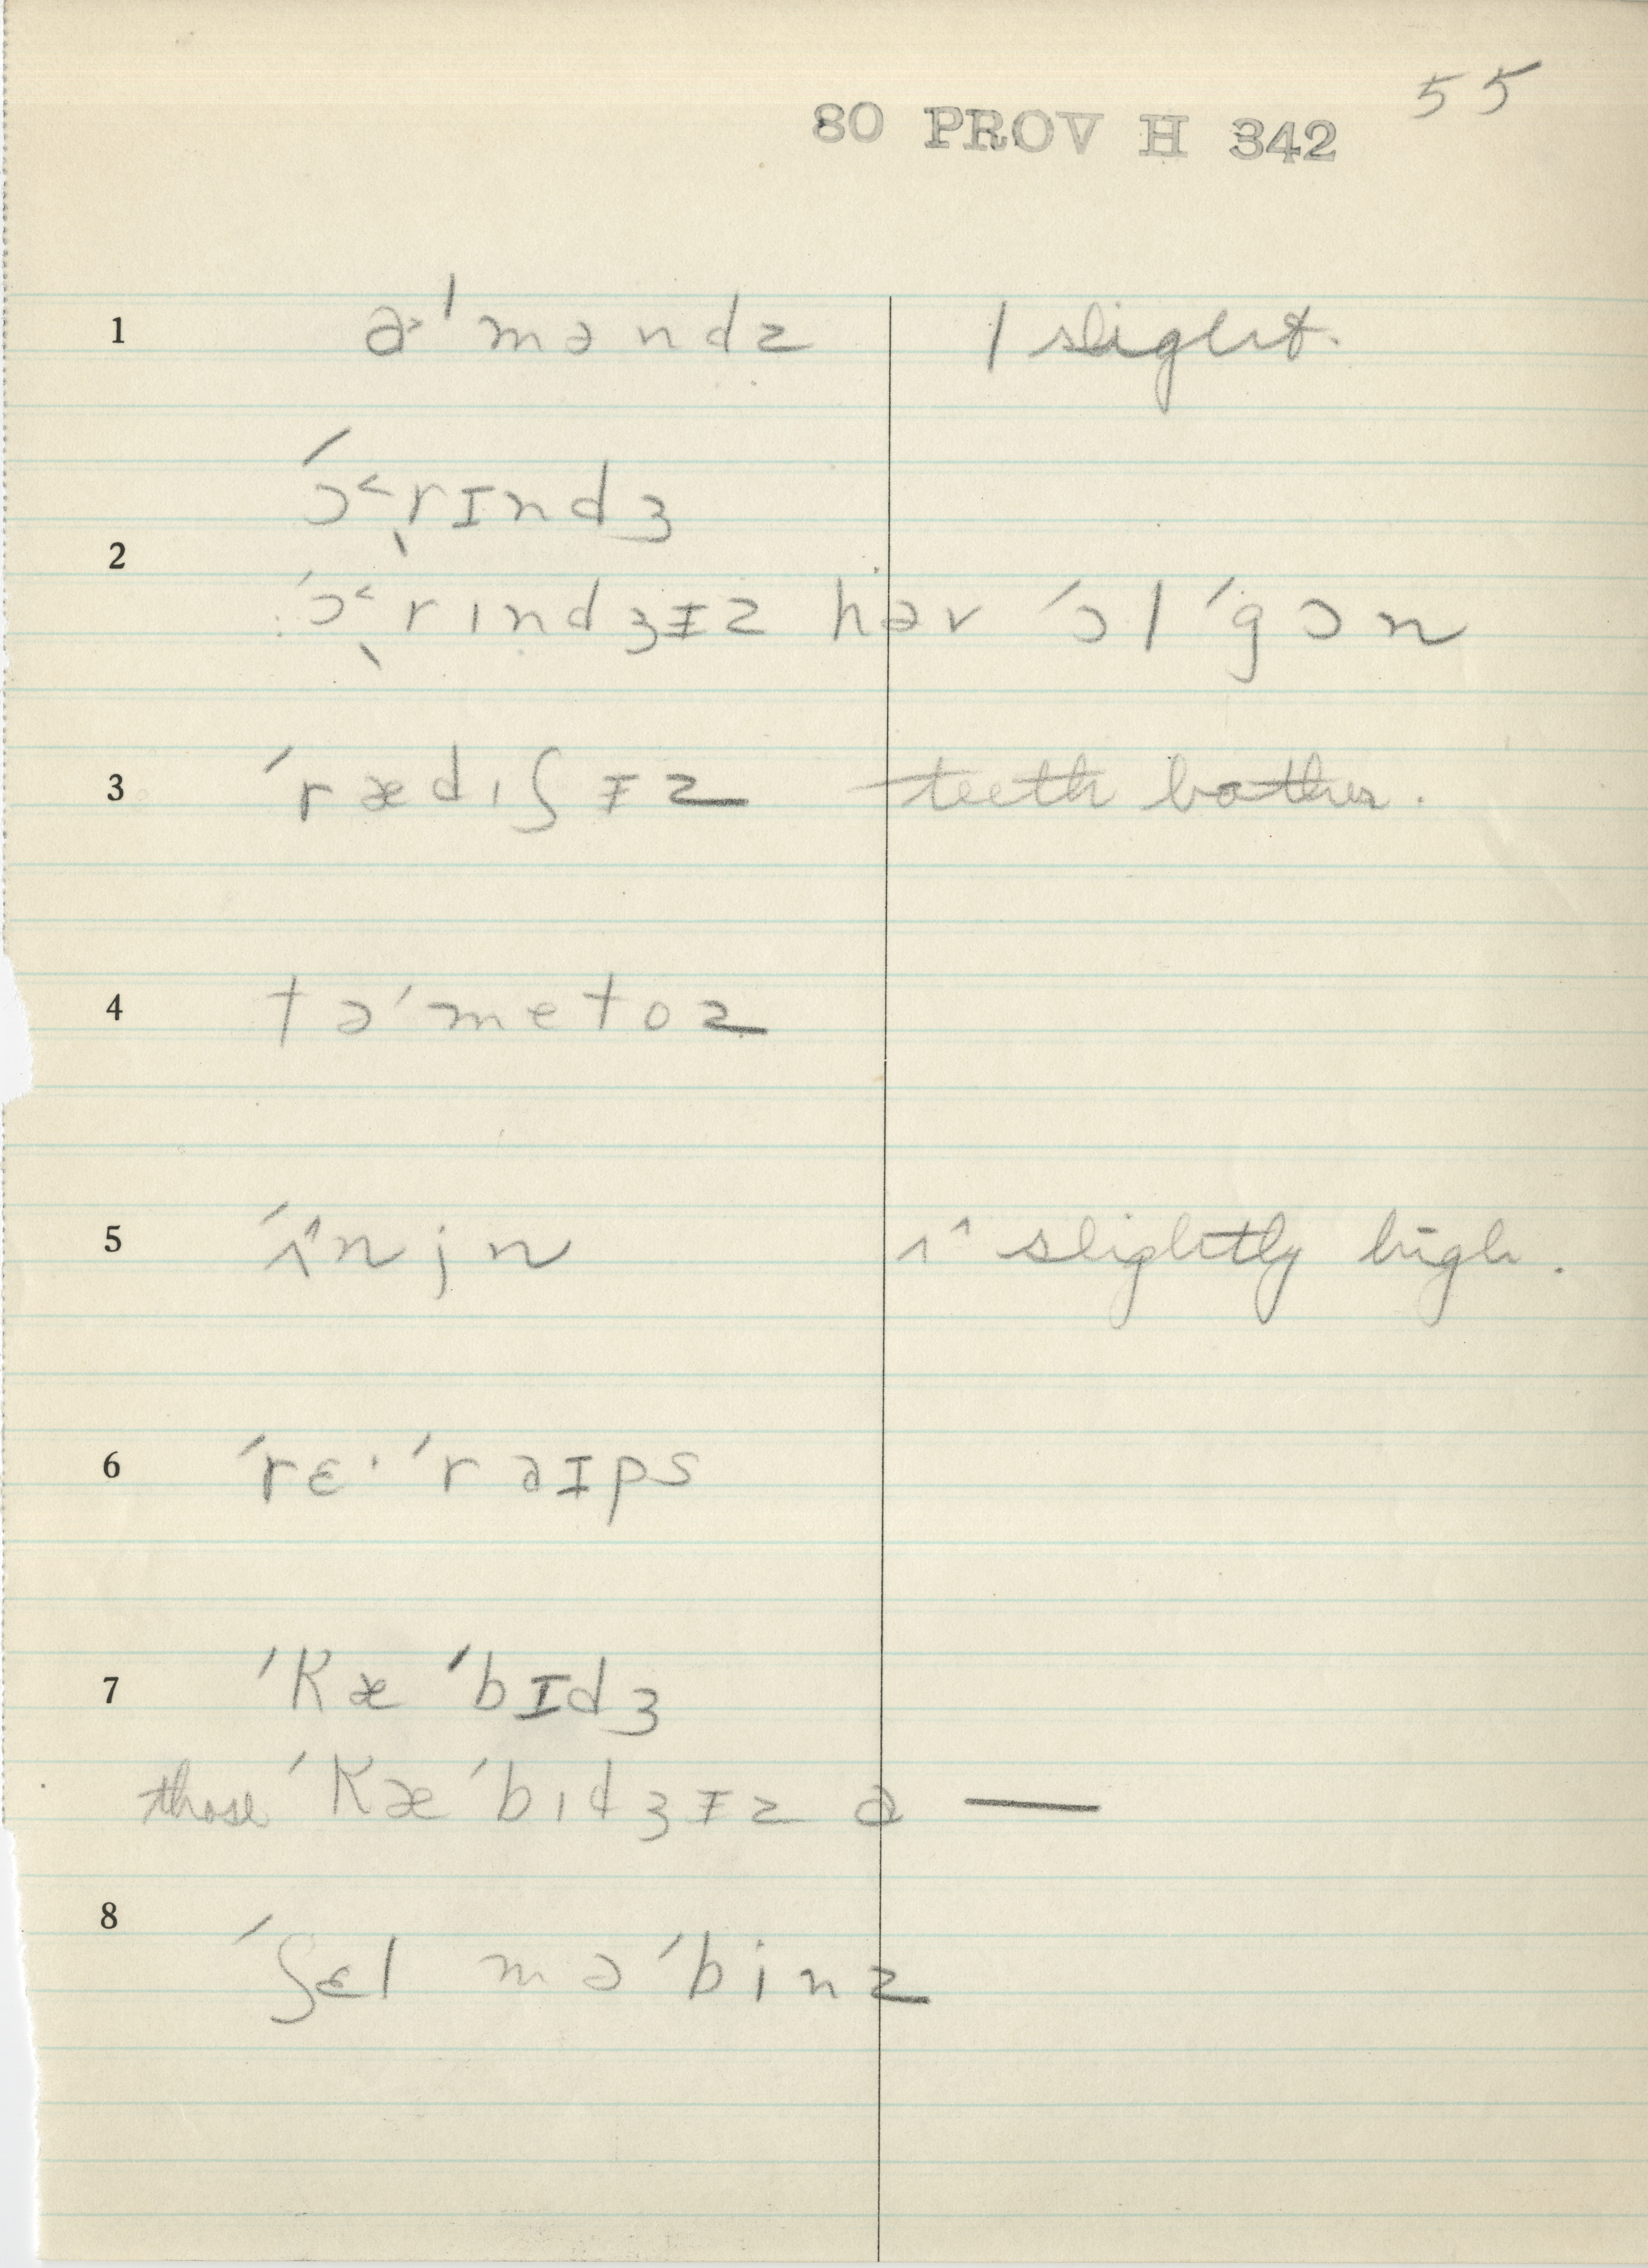 55
80 PROV H 342
1 a˃ˈməndz | slight.
2 ˊɔ˂rɪndʒ
ˊɔ˂rɪndʒɪz həv ˊɔl ˊgɔn
3 ˊrædɪʃɪz teeth bother.
4 təˊmetoz
5 ˊʌ˄njn ʌ˄ slightly high.
6 ˊrɛ· ˊraɪps
7 ˊkæ ˊbɪdʒ
those ˊkæˊbɪdʒɪz ə —
8 ˊʃɛl məˊbinz